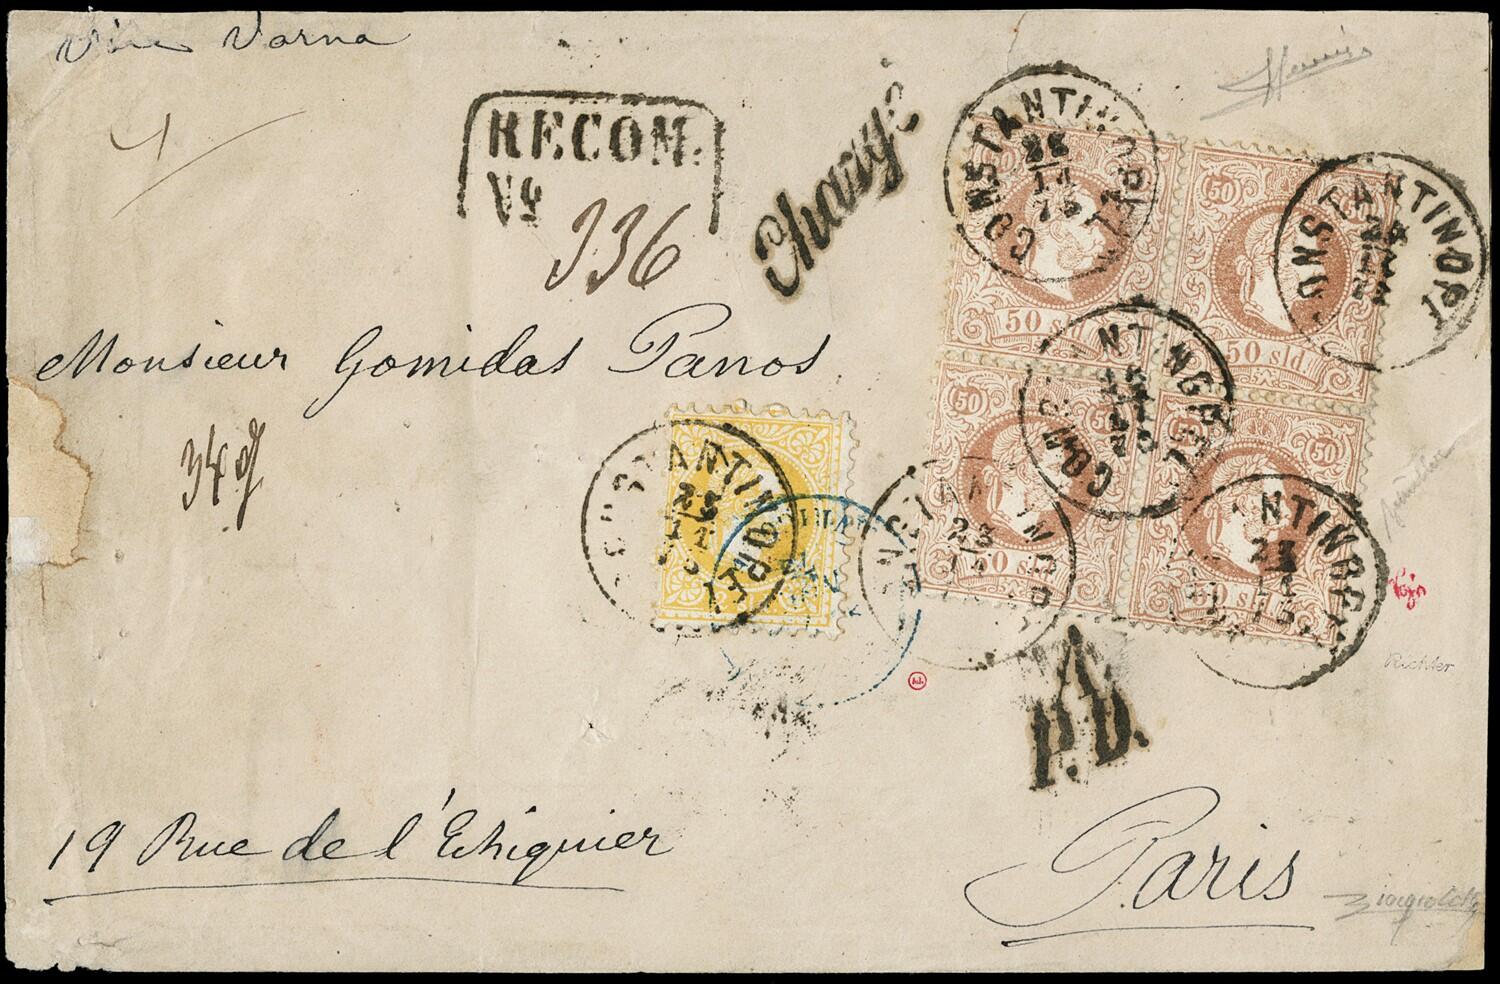 Via Varna
RECOM.
No 336
Chargé
CONSTANTINOPEL
CONSTANTINOPEL
50 50
50 sld
50 sld
CONSTANTINOPEL
50 50 50
50 sld
50 sld
Monsieur Gomidas Panos
34 g
CONSTANTINOPEL
CONSTANTINOPEL
23
CONSTANTINOPEL
P.D.
Richter
19 Rue de l'Echiquier
Paris